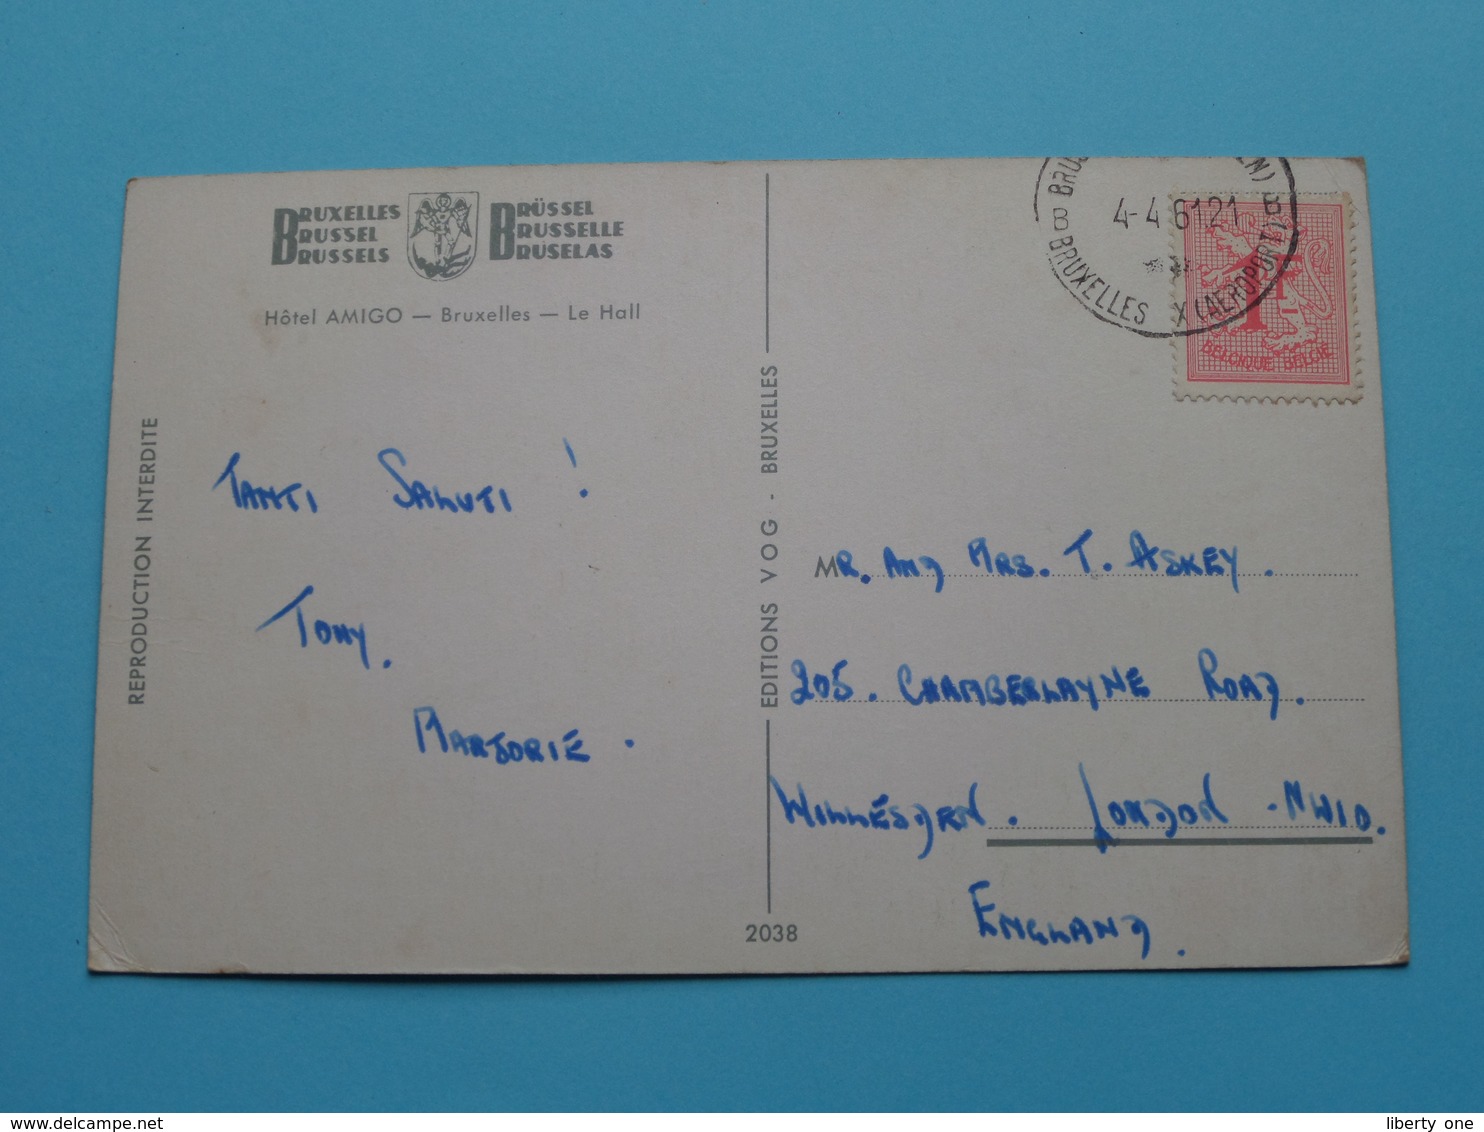 BRUXELLES
BRUSSEL
BRUSSELS
BRÜSSEL
BRUSSELLE
BRUSELAS
Hôtel AMIGO — Bruxelles — Le Hall
REPRODUCTION INTERDITE
TANTI SALUTI !
TONY.
MARJORIE.
EDITIONS VOG - BRUXELLES
2038
B BRUXELLES X (AEROPORT) B
4-4 61 21
1F
BELGIQUE BELGIE
MR. AND MRS. T. ASKEY.
205. CHAMBERLAYNE ROAD.
WILLESDEN. LONDON - NW10.
ENGLAND.
delcampe.net
liberty one